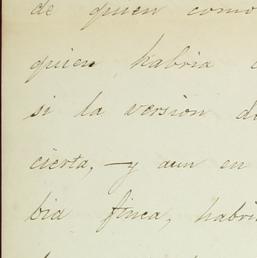 de quien como
quien habria
si la version
cierta, — y aun en
bia finca, habri